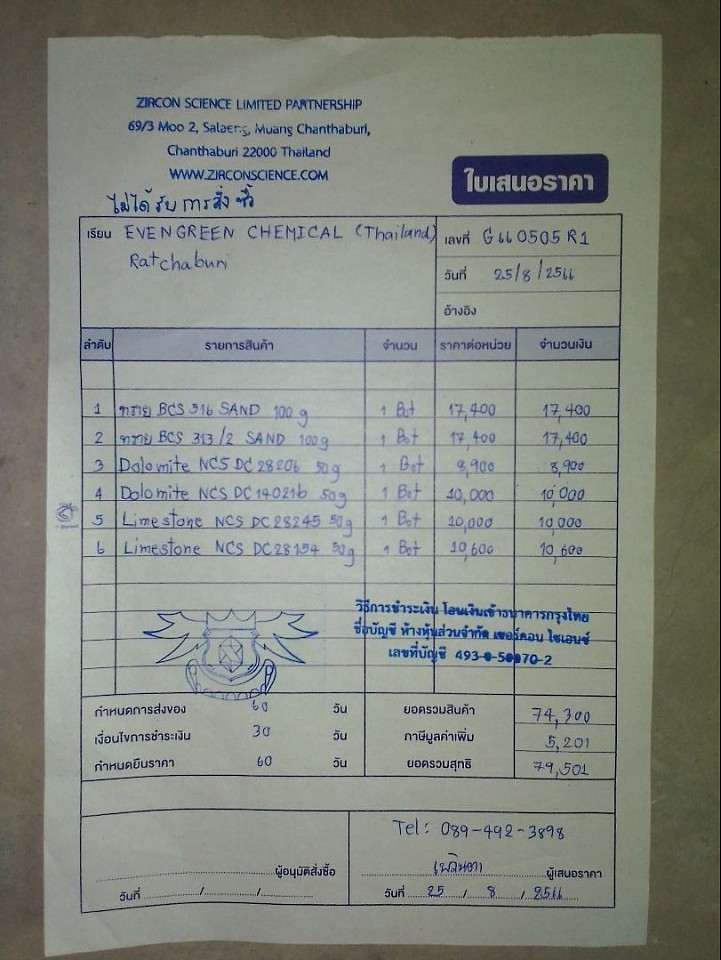 ZIRCON SCIENCE LIMITED PARTNERSHIP
69/3 Moo 2, Salaeng, Muang Chanthaburi,
Chanthaburi 22000 Thailand
WWW.ZIRCONSCIENCE.COM
ใบเสนอราคา
ไม่ได้รับการสั่งซื้อ
เรียน EVENGREEN CHEMICAL (Thailand)
Ratchaburi
เลขที่ G660505R1
วันที่ 25/8/2566
อ้างอิง
ลำดับ รายการสินค้า จำนวน ราคาต่อหน่วย จำนวนเงิน
1 ทราย BCS 516 SAND 100 g 1 Bot 17,400 17,400
2 ทราย BCS 313/2 SAND 100g 1 Bot 17,400 17,400
3 Dolomite NCS DC 28206 50g 1 Bot 8,900 8,900
4 Dolomite NCS DC 14021b 50g 1 Bot 10,000 10,000
5 Limestone NCS DC 28245 50g 1 Bot 10,000 10,000
6 Limestone NCS DC 28154 50g 1 Bot 10,600 10,600
วิธีการชำระเงิน โอนเงินเข้าธนาคารกรุงไทย
ชื่อบัญชี ห้างหุ้นส่วนจำกัด เซอร์คอน ไซเอนซ์
เลขที่บัญชี 493-0-50070-2
กำหนดการส่งของ 60 วัน ยอดรวมสินค้า 74,300
เงื่อนไขการชำระเงิน 30 วัน ภาษีมูลค่าเพิ่ม 5,201
กำหนดยืนราคา 60 วัน ยอดรวมสุทธิ 79,501
Tel: 089-492-3898
ผู้อนุมัติสั่งซื้อ
ผู้เสนอราคา
วันที่ / /
วันที่ 25 / 8 / 2566